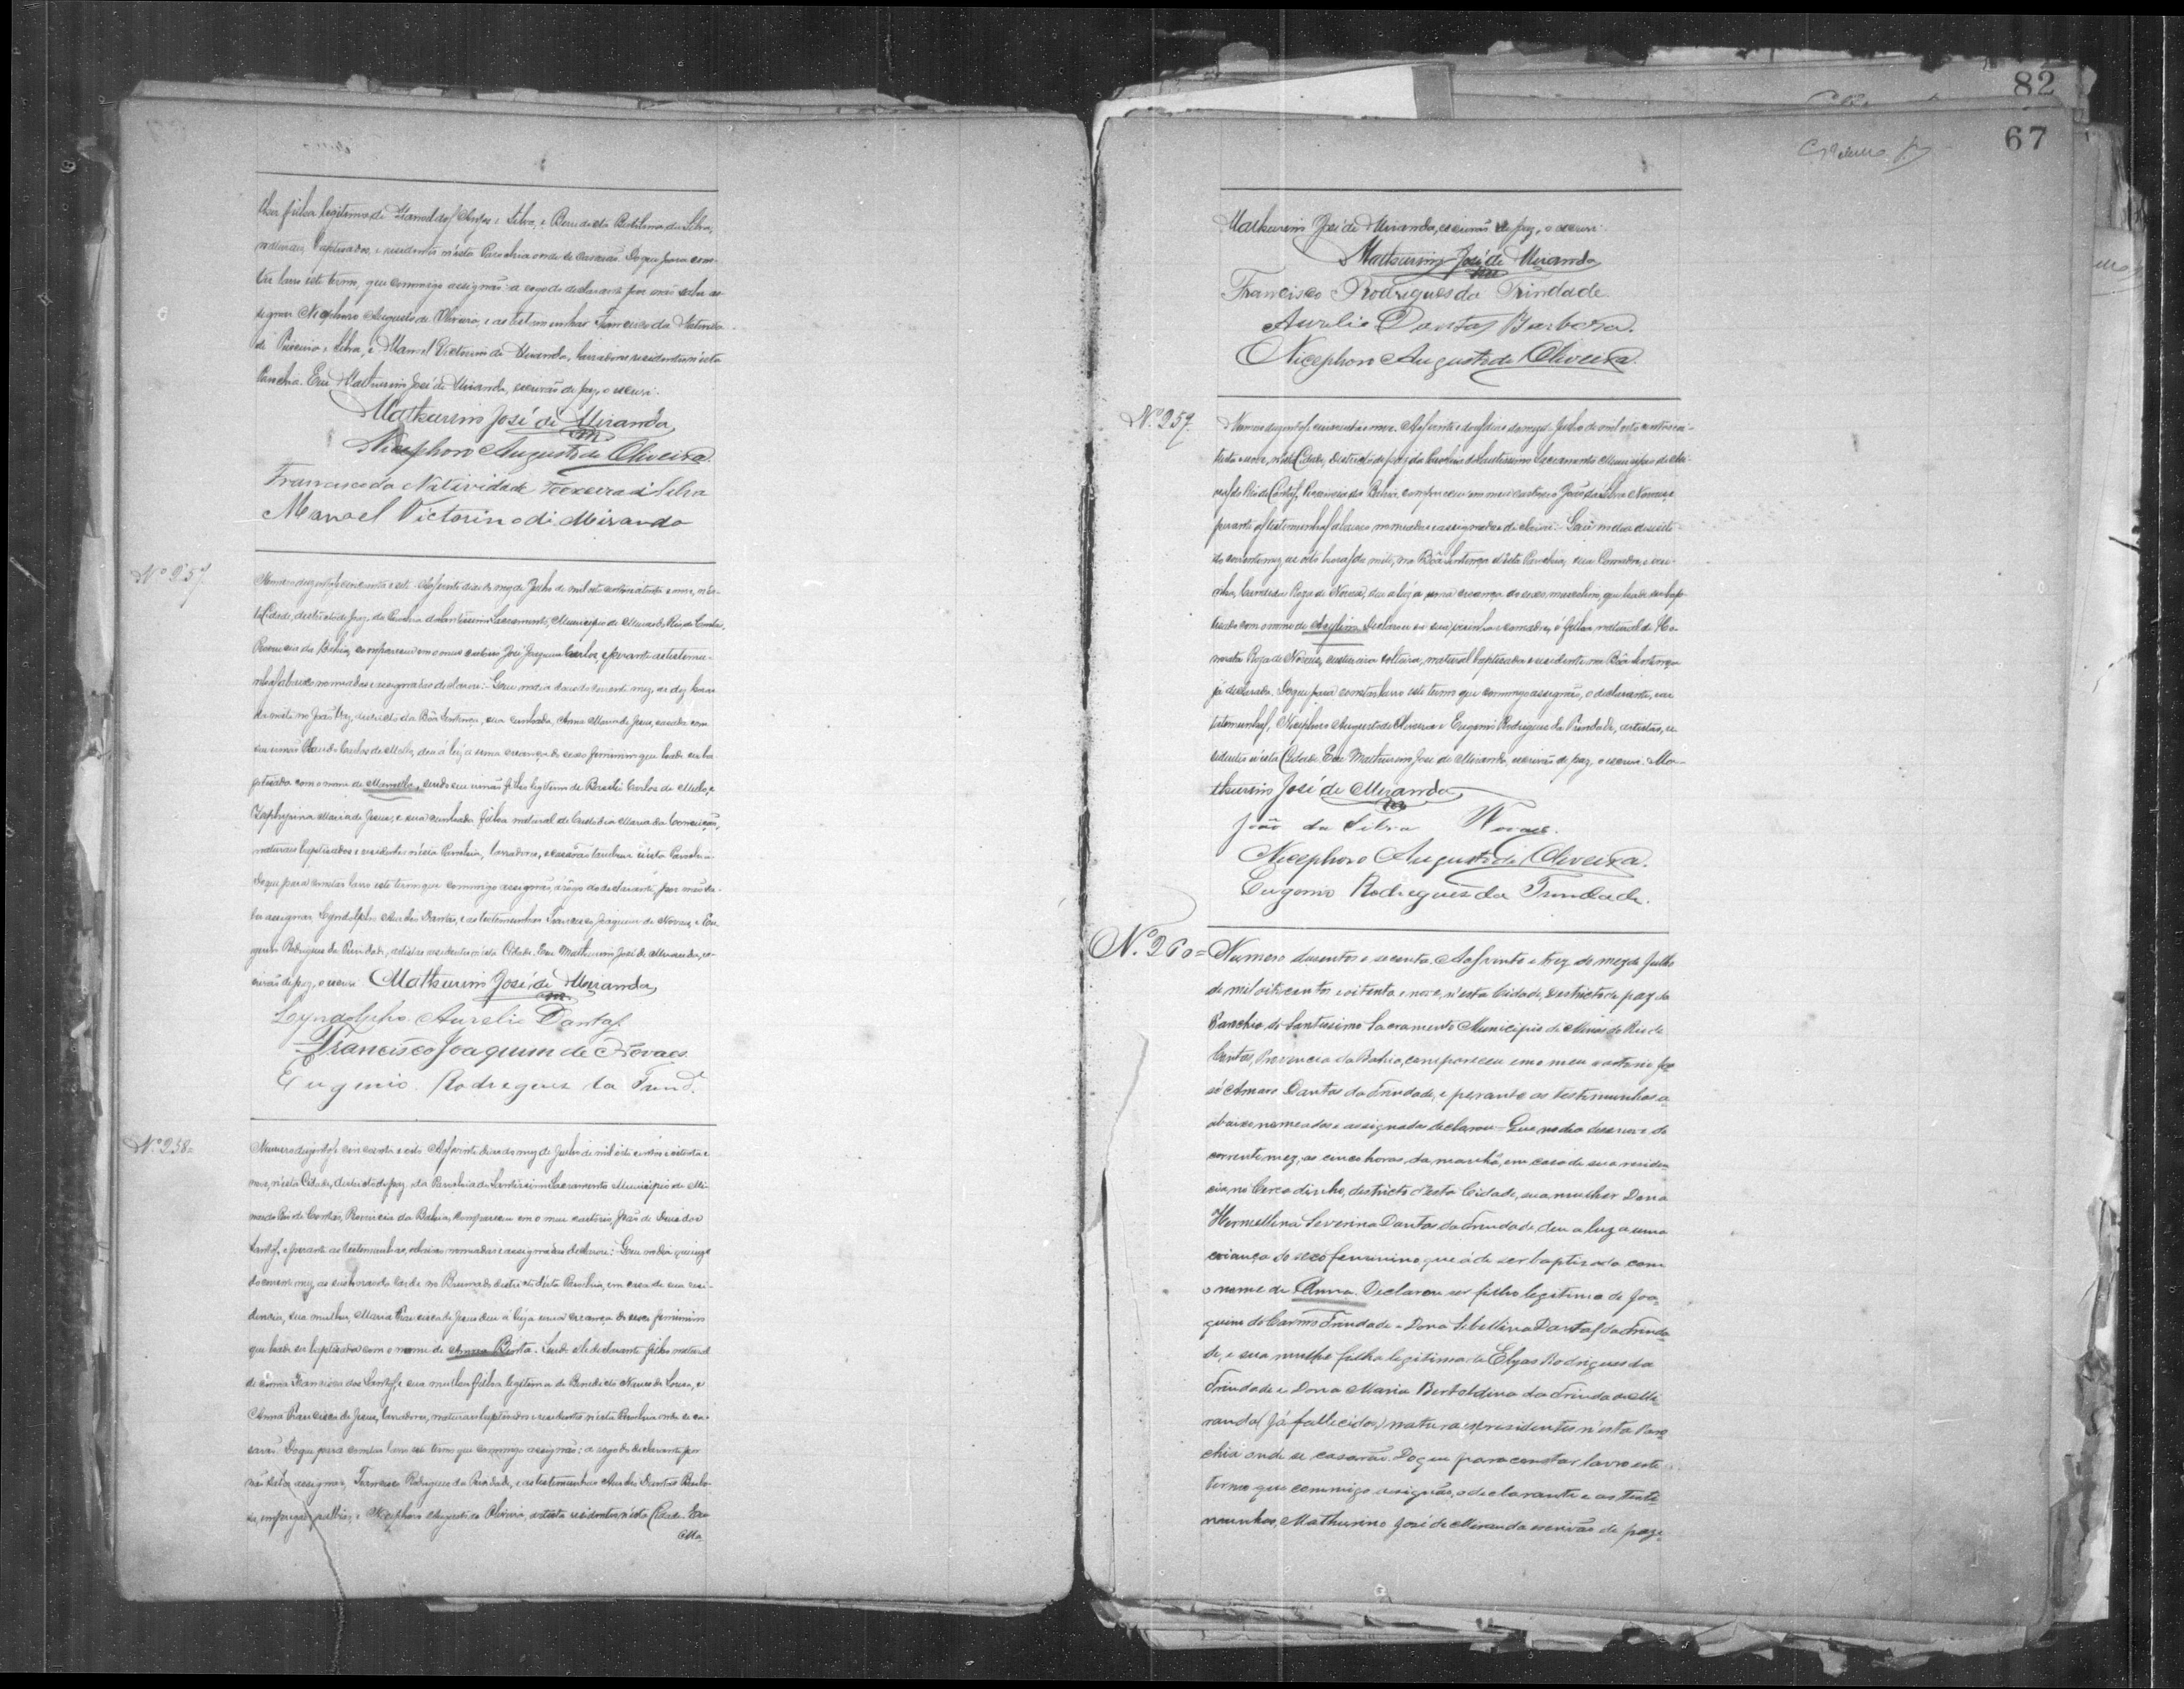 lher filha legitima de Manoel dos Anjos e Silva, e Benedicta da Silva,
naturaes, baptisados, e residentes n'esta Parochia onde se casarão. Do que para cons-
tar lavro este termo, que commigo assignão: a rogo do declarante por não saber as-
signar Nicephoro Augusto de Oliveira, e as testemunhas Francisco da Natividade
Teixeira e Silva, e Manoel Victorino de Miranda, lavradores residentes n'esta
Parochia. Eu Mathurino José de Miranda, escrivão de paz, o escrevi.
Mathurino José de Miranda
Nicephoro Augusto de Oliveira.
Francisco da Natividade Teixeira e Silva
Manoel Victorino de Miranda
Nº 257.
Numero duzentos cincoenta e sete. Aos vinte dias do mez de Julho de mil oito centos oitenta e nove, n'es-
ta Cidade, destricto de paz, da Parochia do Santissimo Sacramento, Municipio de Minas do Rio de Contas,
Provincia da Bahia, compareceu em o meu cartorio José Joaquim Carlos, e perante as testemu-
nhas abaixo nomeadas e assignadas declarou: Que no dia do corrente mez, as dez horas
da noite no João Vaz, districto da Bôa Sentença, sua cunhada, Anna Maria de Jesus, casada com
seu irmão Carlos de Mello, deu á luz a uma creança do sexo feminino que hade ser ba-
ptisada com o nome de Marcella, sendo seu irmão filho legitimo de Basilio Carlos de Mello, e
Zephyrina Maria de Jesus, e sua cunhada filha natural de Custodia Maria da Conceição,
naturaes baptisados e residentes n'esta Parochia, lavradores, e casarão tambem n'esta Parochia.
Do que para constar lavro este termo que commigo assignão, a rogo do declarante, por não sa-
ber assignar, Lyndolpho Aurelio Dantas, e as testemunhas Francisco Joaquim de Novaes, e Eu-
genio Rodrigues da Trindade, artistas residentes n'esta Cidade. Eu Mathurino José de Miranda, es-
crivão de paz, o escrevi. Mathurino José de Miranda
Lyndolpho Aurelio Dantas
Francisco Joaquim de Novaes
Eugenio Rodrigues da Trind.e
Nº 258=
Numero duzentos cincoenta e oito. Aos vinte dias do mez de Julho de mil oito centos e oitenta e
nove, n'esta Cidade, destricto de paz da Parochia do Santissimo Sacramento Municipio de Mi-
nas do Rio de Contas, Provincia da Bahia, compareceu em o meu cartorio, João de Deus dos
Santos, e perante as testemunhas, abaixo nomeadas e assignadas declarou: Que no dia quinze
do corrente mez, as horas da tarde no Brumado destricto desta Parochia, em casa de sua resi-
dencia, sua mulher, Maria Francisca de Jesus deu á luz a uma creança do sexo feminino
que hade ser baptisada com o nome de Anna Bertha. Sendo elle declarante filho natural
de Francisca dos Santos, e sua mulher filha legitima de Benedicto Nunes de Souza, e
Anna Francisca de Jesus, lavradores, naturaes baptisados e residentes n'esta Parochia onde se ca-
sarão. Do que para constar lavro este termo que commigo assignão: a rogo do declarante por
não saber assignar, Francisco Rodrigues da Trindade, e as testemunhas Aurelio Dantas Barbo-
sa, empregado publico, e Nicephoro Augusto de Oliveira, artista residentes n'esta Cidade. Eu
Ma-
82
67
Mathurino José de Miranda, escrivão de paz, o escrevi.
Mathurino José de Miranda
Francisco Rodrigues da Trindade.
Aurelio Dantas Barbosa.
Nicephoro Augusto de Oliveira.
Nº 259.
Numero duzentos cincoenta e nove. Aos vinte e dous dias do mez de Julho de mil oito centos oi-
tenta e nove, n'esta Cidade, Destricto de paz da Parochia do Santissimo Sacramento Municipio de Mi-
nas do Rio de Contas, Provincia da Bahia, compareceu em meu cartorio João da Silva Novaes, e
perante as testemunhas abaixo nomeadas e assignadas declarou: Que no dia desesete
do corrente mez, as oito horas da noite, na Bôa Sentença d'esta Parochia, sua Comadre, e visi-
nha, Roza de Novaes, deu a luz a uma creança do sexo masculino, que hade ser bap-
tisada com o nome de Declarou ser sua visinha e comadre, filha natural de Ho-
norata Roza de Novaes, costureira solteira, natural baptisada e residente na Bôa Sentença
já declarada. Do que para constar lavro este termo que commigo assignão, o declarante, e as
testemunhas, Nicephoro Augusto de Oliveira e Eugenio Rodrigues da Trindade, artistas, re-
sidentes n'esta Cidade. Eu Mathurino José de Miranda, escrivão de paz, o escrevi. Ma-
thurino José de Miranda
João da Silva Novaes.
Nicephoro Augusto de Oliveira.
Eugenio Rodrigues da Trindade.
Nº. 260=
Numero dusentos e secenta. Aos vinte e trez do mez de Julho
de mil oitocentos e oitenta e nove, n'esta Cidade, Destricto de paz da
Parochia do Santissimo Sacramento Municipio de Minas do Rio de
Contas, Provincia da Bahia, compareceu em o meu cartorio Jo-
sé Amaro Dantas da Trindade, e perante as testemunhas a-
abaixo nomeadas e assignadas declarou= Que no dia desenove do
corrente mez, as cinco horas, da manhã, em casa de sua residen-
cia, no Cercadinho, destricto d'esta Cidade, sua mulher Dona
Hermellina Severina Dantas da Trindade, deu a luz a uma
criança do sexo feminino que á de ser baptisada com
o nome de Anna. Declarou ser filho legitimo de Joa-
quim do Carmo Trindade e Dona Sibellina Dantas da Trinda-
de, e sua mulher filha legitima de Elyas Rodrigues da
Trindade e Dona Maria Bertoldina da Trindade Mi-
randa (já fallecidos) naturaes, e residentes n'esta Paro-
chia onde se casarão. Do que para constar lavro este
termo que commigo assignão, o declarante e as teste-
munhas, Mathurino José de Miranda escrivão de paz.